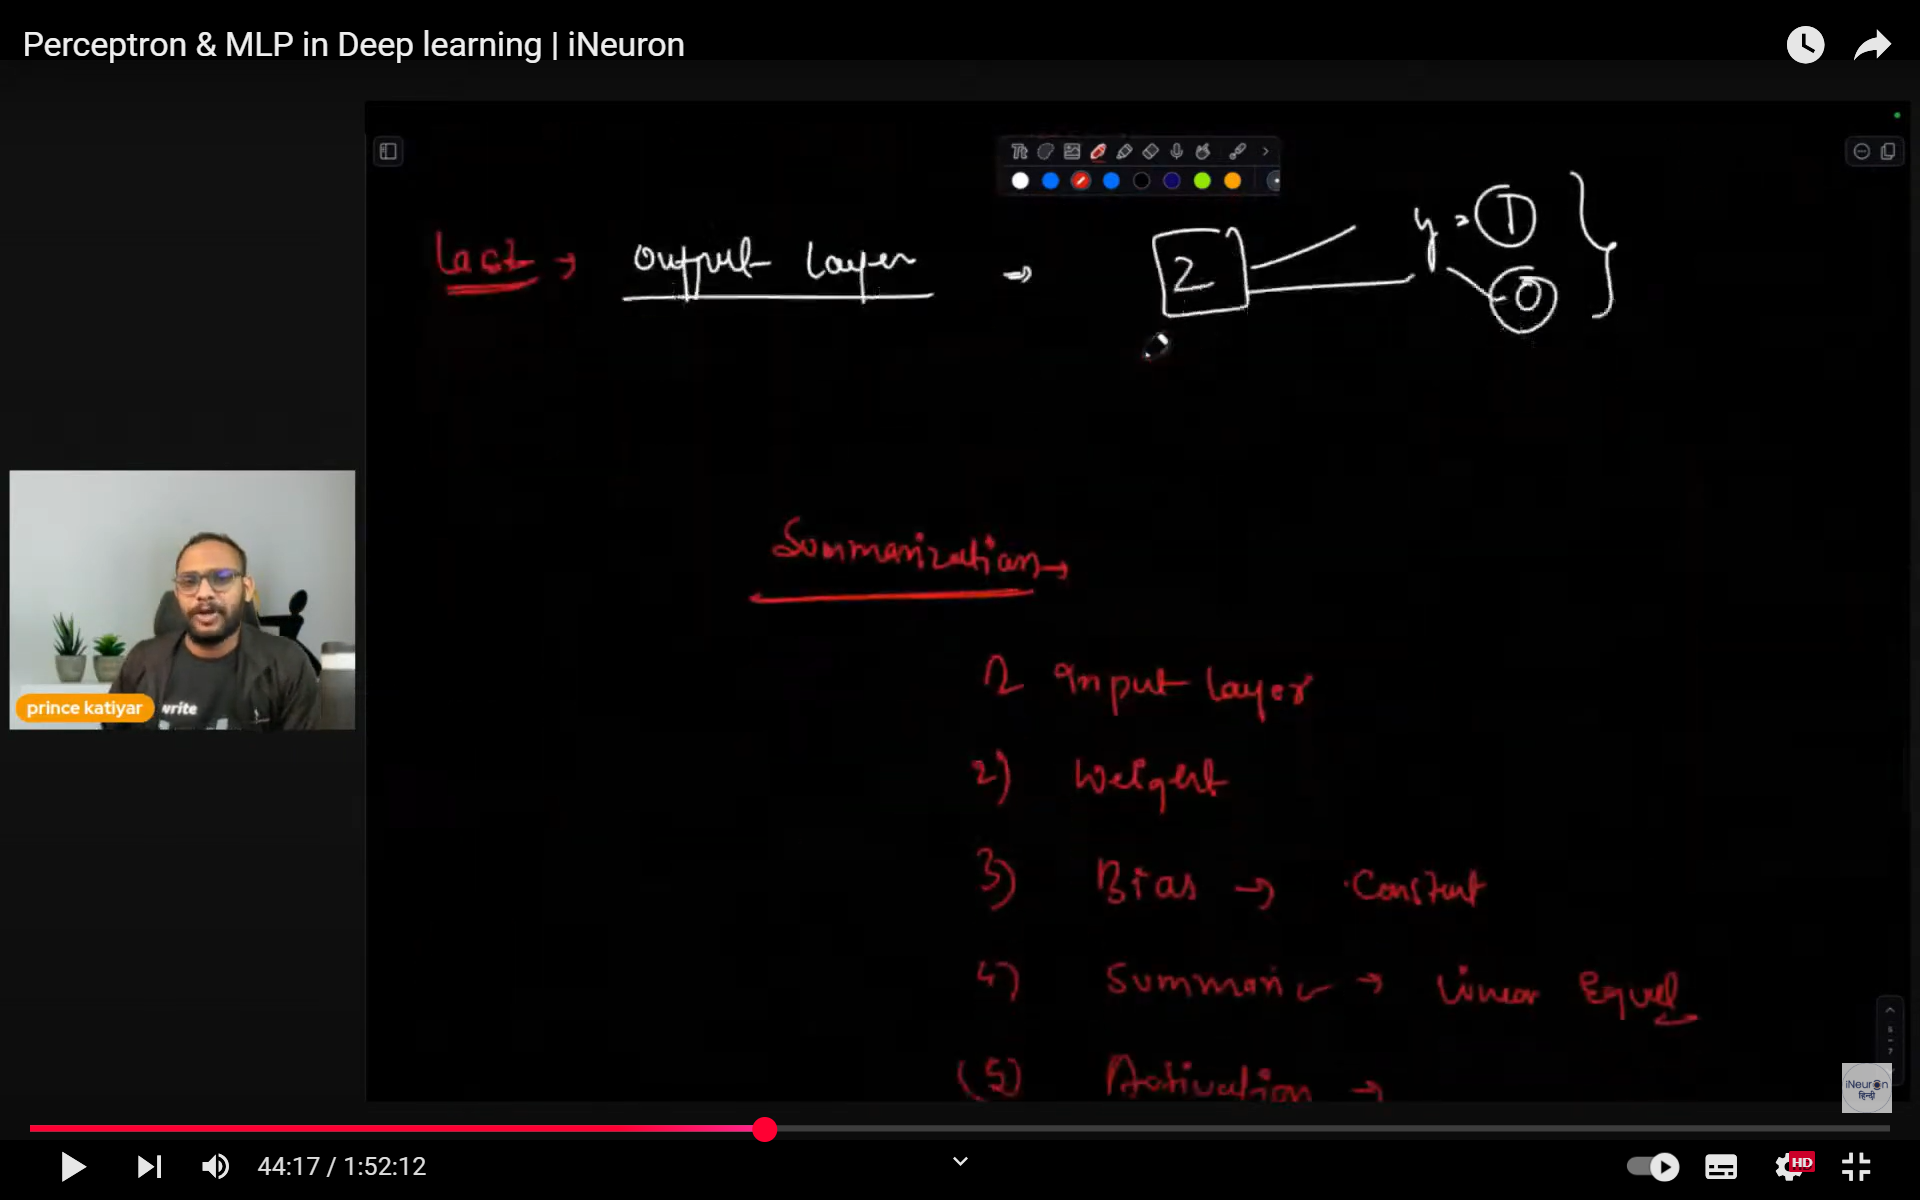 Perceptron & MLP in Deep learning | iNeuron
Last → Output Layer ⇒ 2 y = 1
0
Summarization →
1 Input Layer
2) Weight
3) Bias → Constant
4) Summari → Linear Equel
(5) Activation →
prince katiyar
write
iNeurOn
हिन्दी
44:17 / 1:52:12
HD